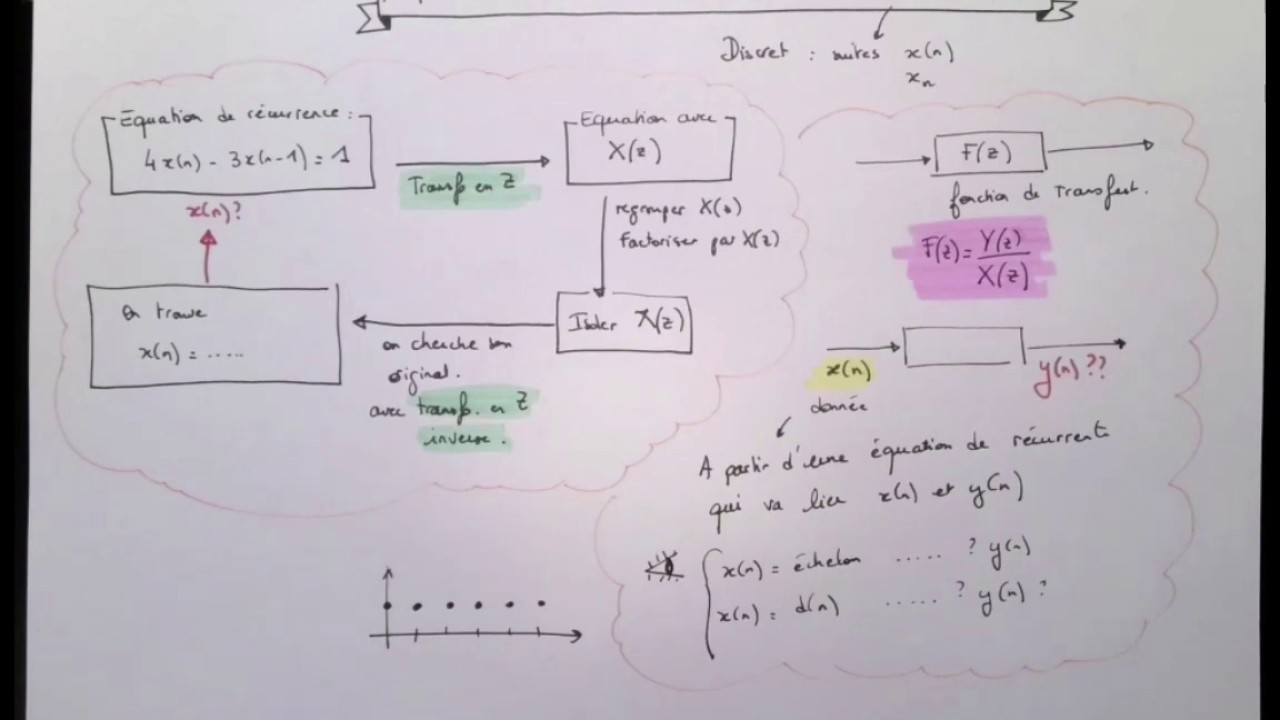 Discret : suites x(n)
xn
Equation de récurrence :
4x(n) - 3x(n-1) = 1
x(n)?
Transf en Z
Equation avec
X(z)
regrouper X(z)
Factoriser par X(z)
Isoler X(z)
on cherche son
original.
avec transf. en Z
inverse.
On trouve
x(n) = .....
F(z)
fonction de Transfert.
F(z) = Y(z)/X(z)
x(n)
donnée
y(n) ??
A partir d'une équation de récurrente
qui va lier x(n) et y(n)
x(n) = échelon ..... ? y(n)
x(n) = d(n) ..... ? y(n) ?